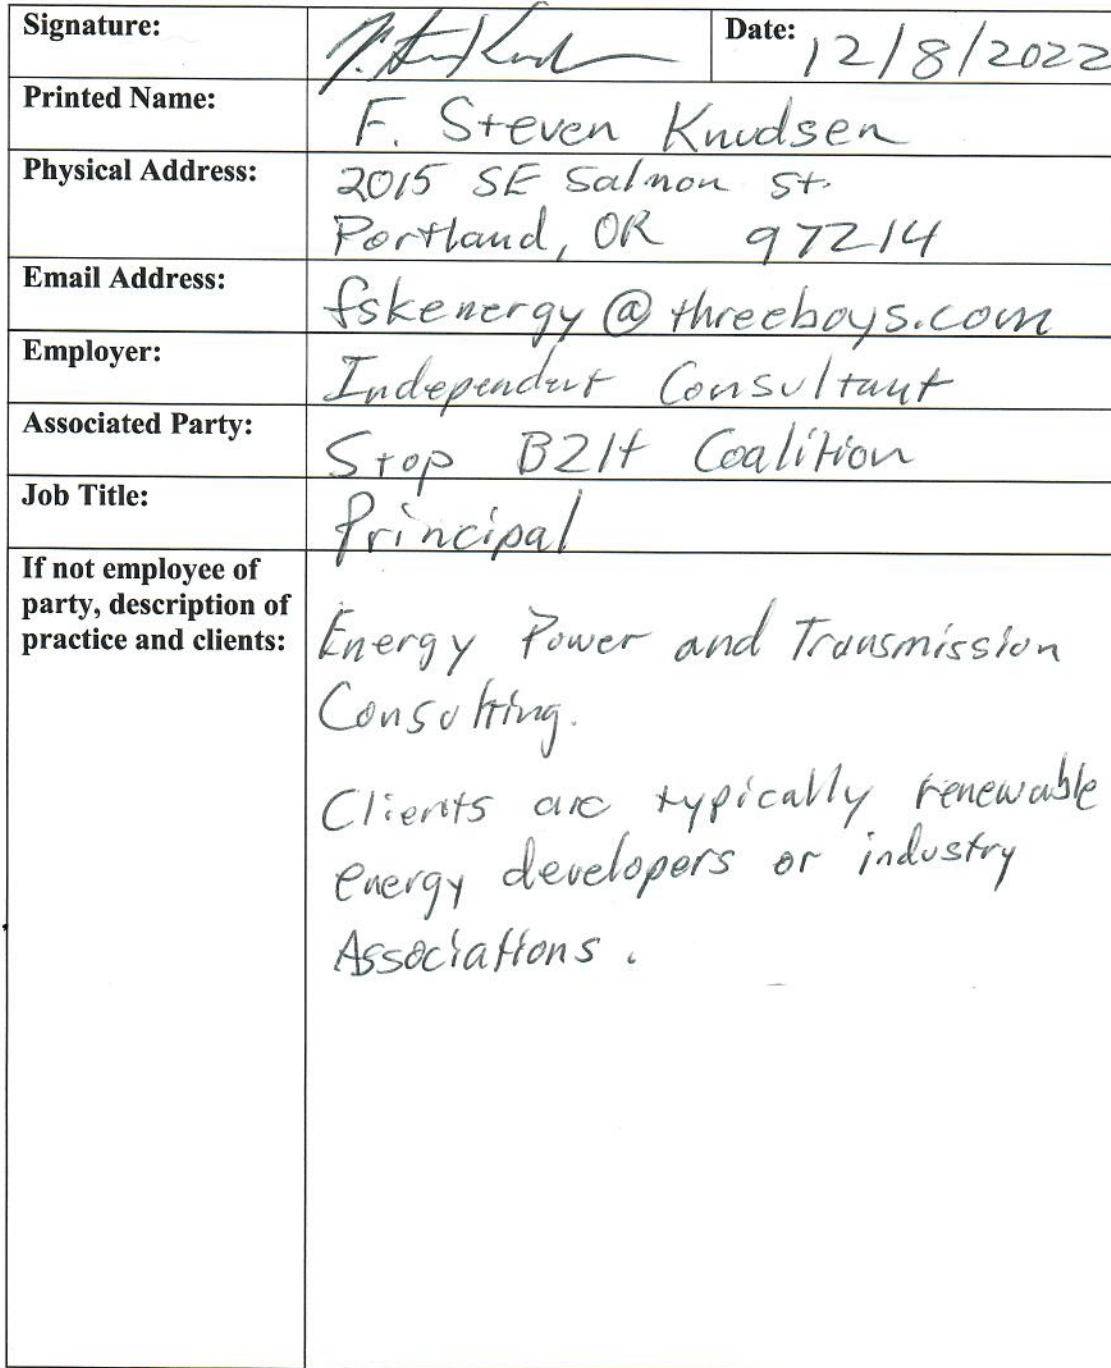 Signature:
Date: 12/8/2022
Printed Name: F. Steven Knudsen
Physical Address: 2015 SE Salmon St.
Portland, OR 97214
Email Address: fskenergy@threeboys.com
Employer: Independent Consultant
Associated Party: Stop B2H Coalition
Job Title: Principal
If not employee of
party, description of
practice and clients:
Energy Power and Transmission
Consulting.
Clients are typically renewable
energy developers or industry
Associations.